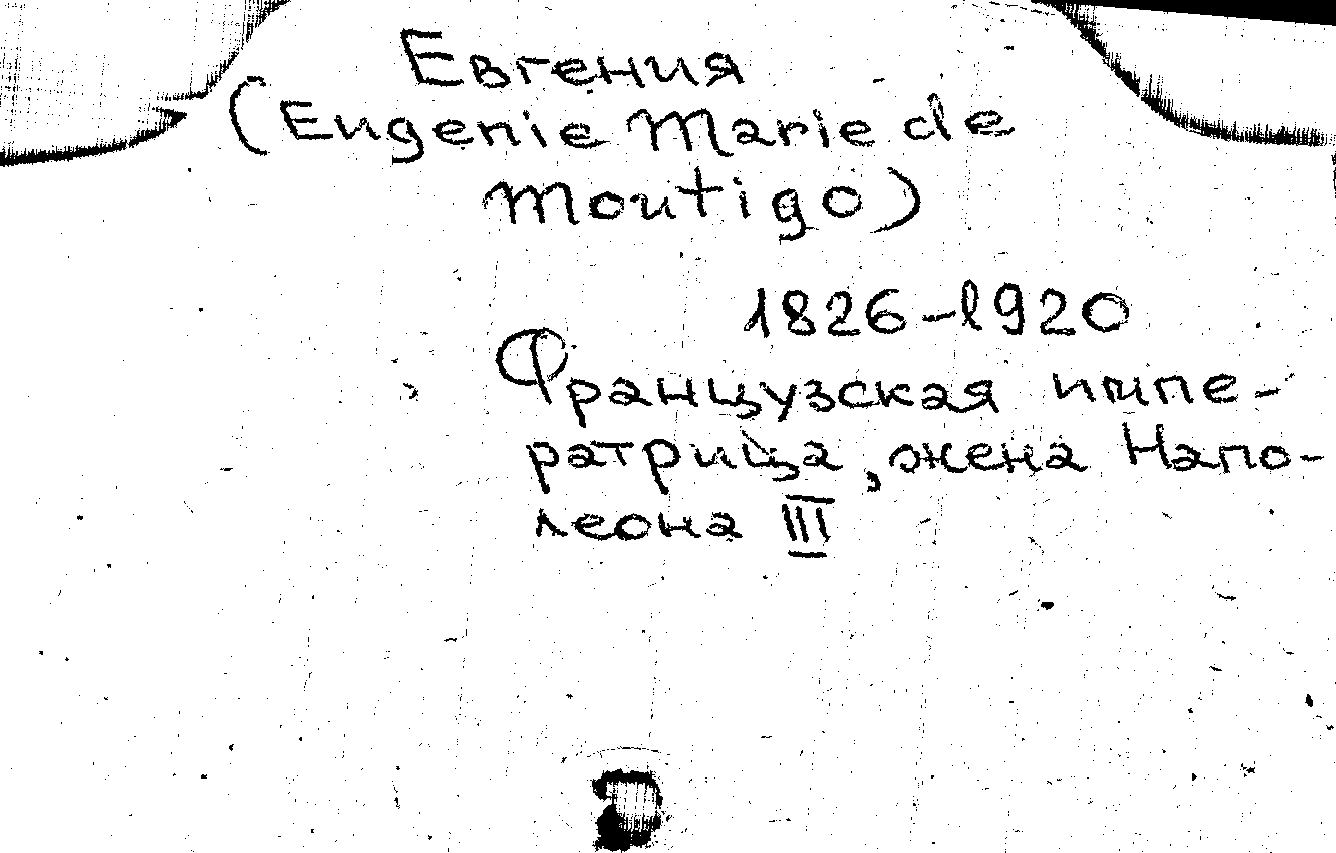 Евгения
(Eugenie Marie de
Moutigo)
1826-1920
Французская импе-
ратрица, жена Напо-
леона III